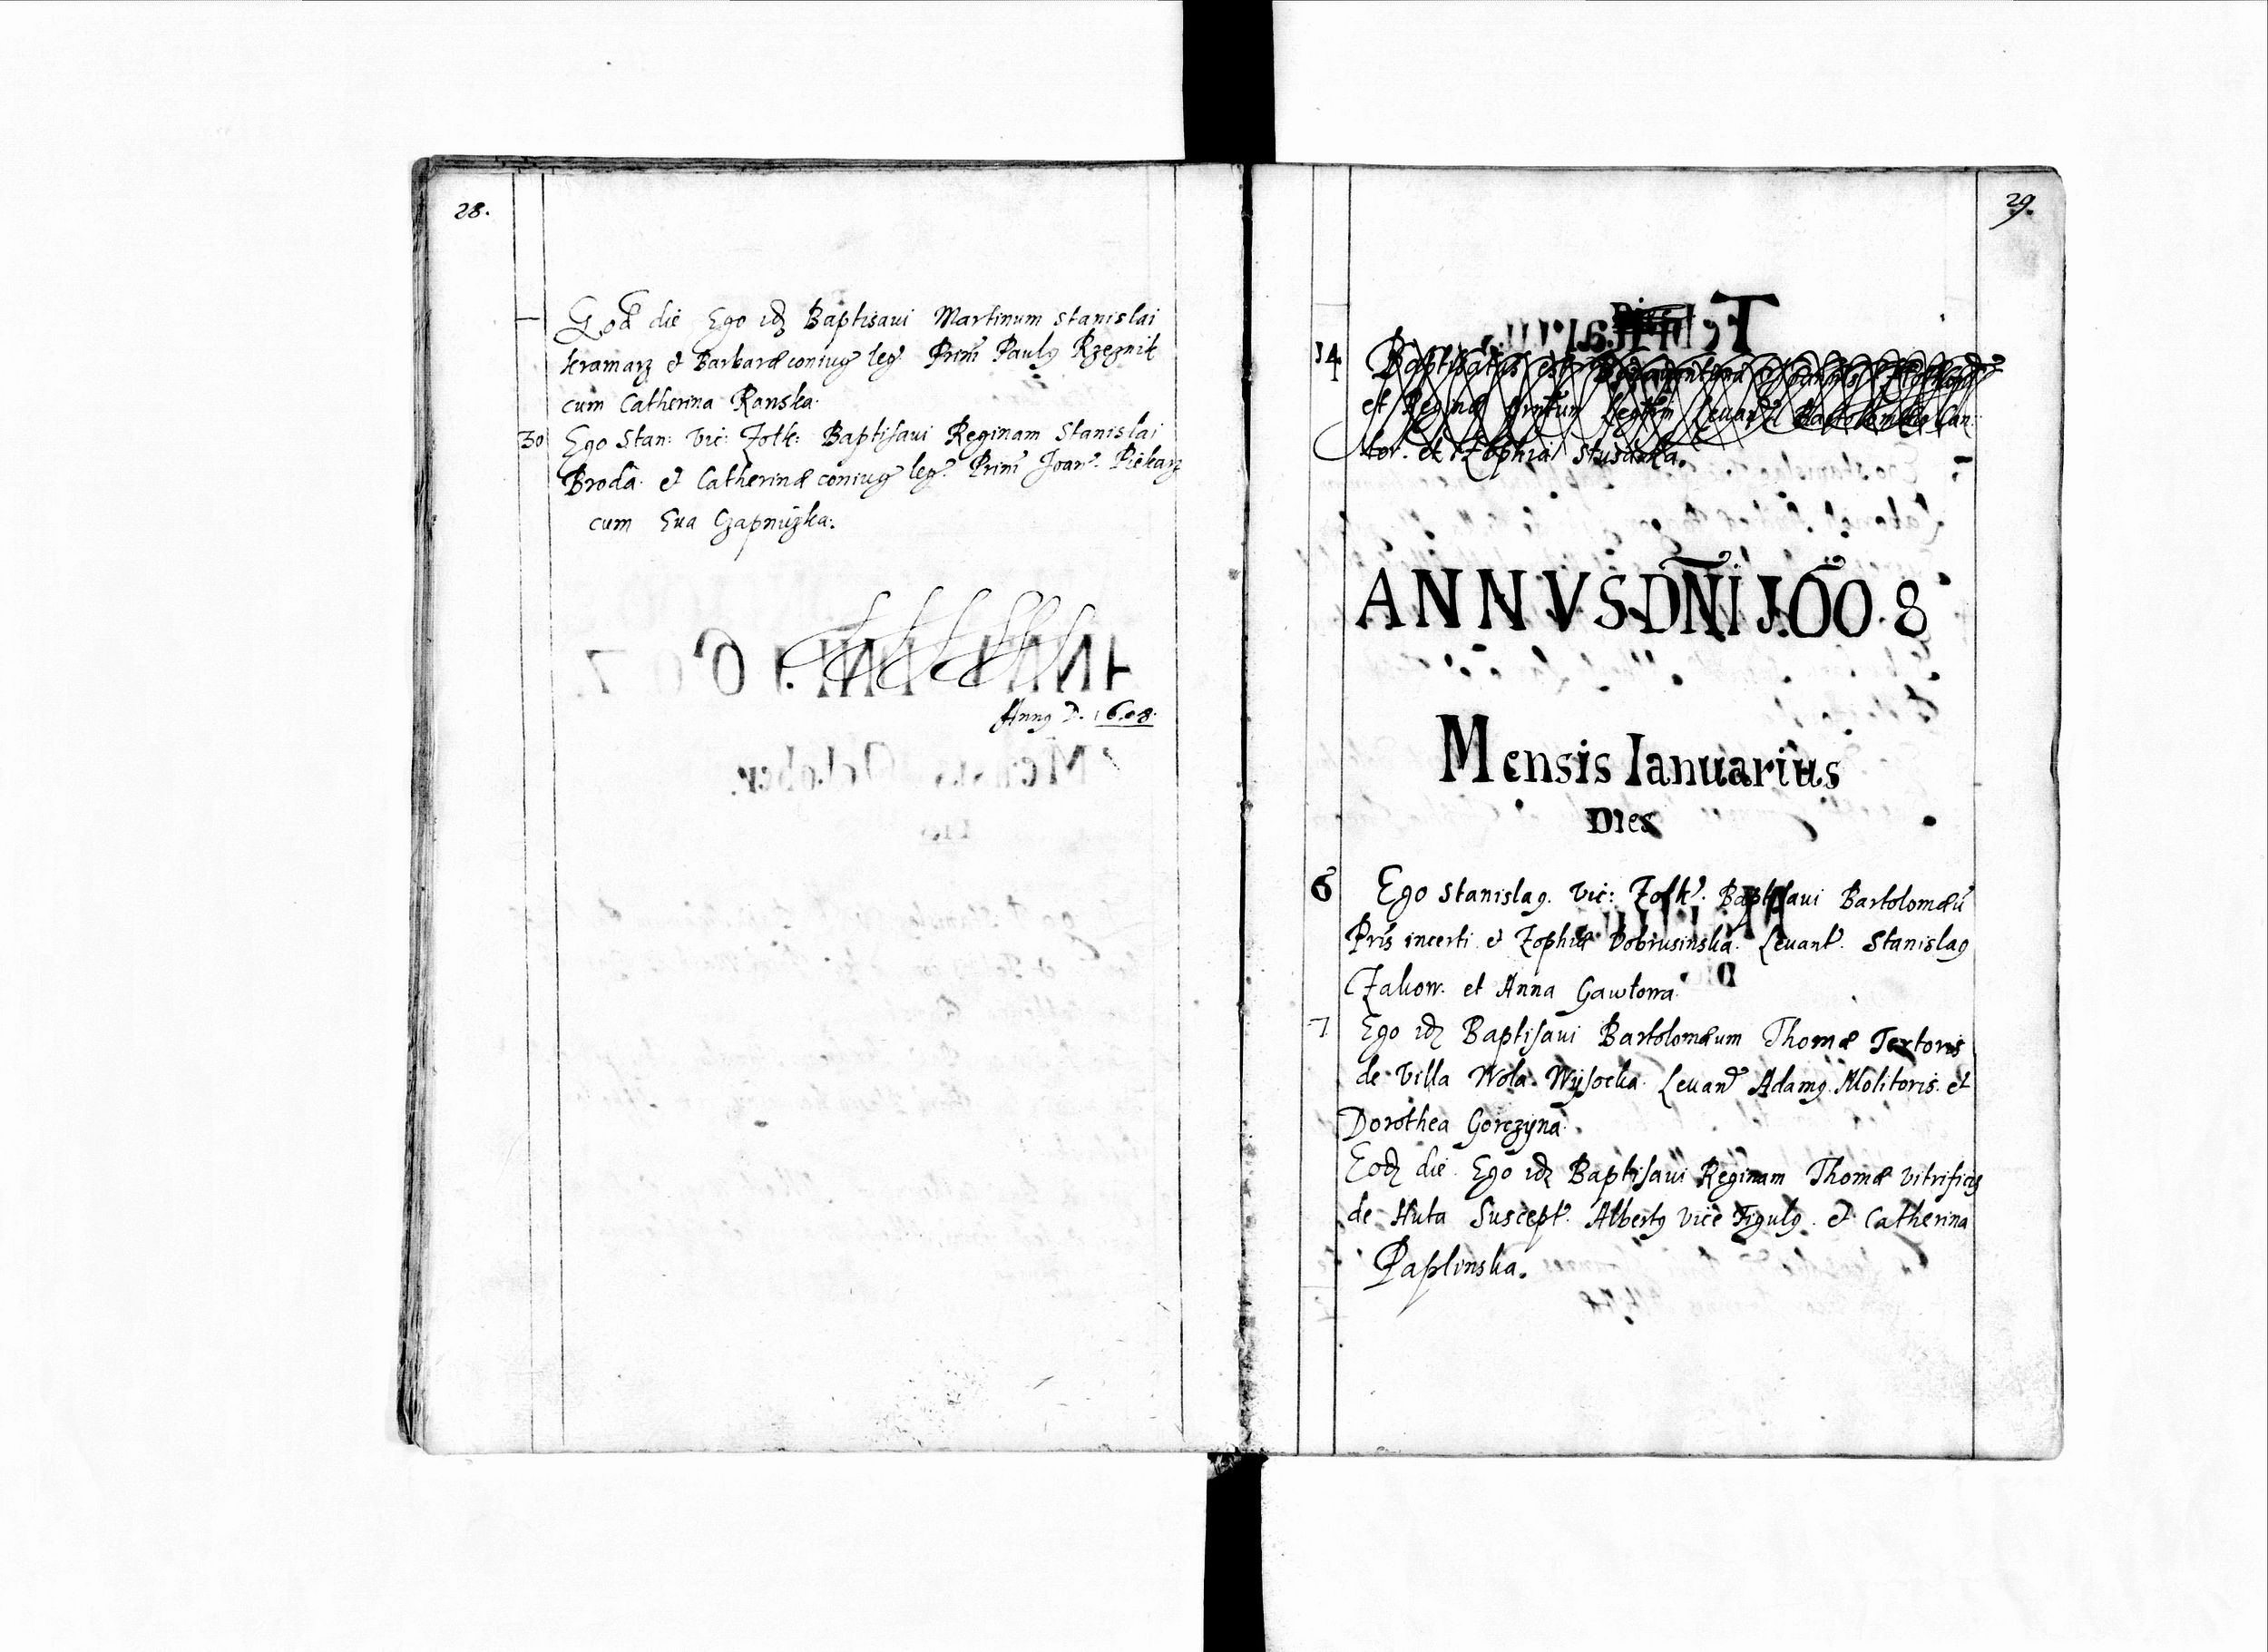 28.
Eod die Ego idz Baptisaui Martinum Stanislai
kramarz et Barbaræ coniug leg. Prim Paulg Rzeznik
cum Catherina Ranska.
30 Ego Stan: Vic: Zolk: Baptisaui Reginam Stanislai
Broda et Catherinæ coniug leg. Prim Joan. Piekarz
cum Eua Czapnizka.
Anng D. 1608.
29.
14 Baptisatus est
et Reginæ Leuant Bartolomeg Can:
tor. et Zophia
ANNVS DÑI 1.6̃0.8
Mensis Ianuarius
Dies
6 Ego Stanislag. Vic: Zolk. Baptisaui Bartolomæū
Pris incerti et Zophiæ Dobrusinska. Leuant. Stanislag
Zakow. et Anna Gawłowa.
7 Ego idz Baptisaui Bartolomæum Thomæ Textoris
de Villa Wola Wysocka. Leuant Adamg Molitoris et
Dorothea Gorczyna.
Eodz die. Ego idz Baptisaui Reginam Thomæ Vitrificis
de Huta Suscept. Albertg Vice Figulg. et Catherina
Paplinska.